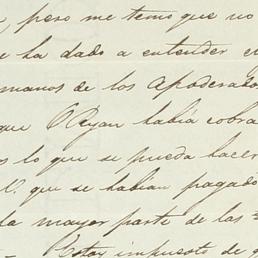 , pero me temo que no
e ha dado a entender e
manos de los Apoderado
que O'Ryan había cobra
s lo que se pueda hacer
V. que se habían pagado
la mayor parte de las
Estoy impuesto de q